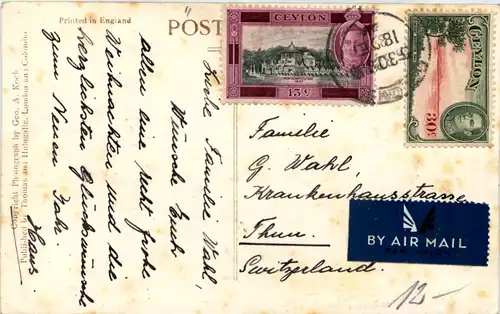 Printed in England
POST
CEYLON
15 C.
CEYLON
30 C
Liebe Familie Wahl,
Wünsche Euch
allen eine recht frohe
Weihnachten und die
herzlichsten Glückwünsche
zum Neuen Jahr.
Haus.
Familie
G. Wahl,
Krankenhausstrasse
Thun.
Switzerland.
BY AIR MAIL
12-
Copyright Photograph by Geo. A. Koch
Published by Thomas and Hehugalle, London and Colombo